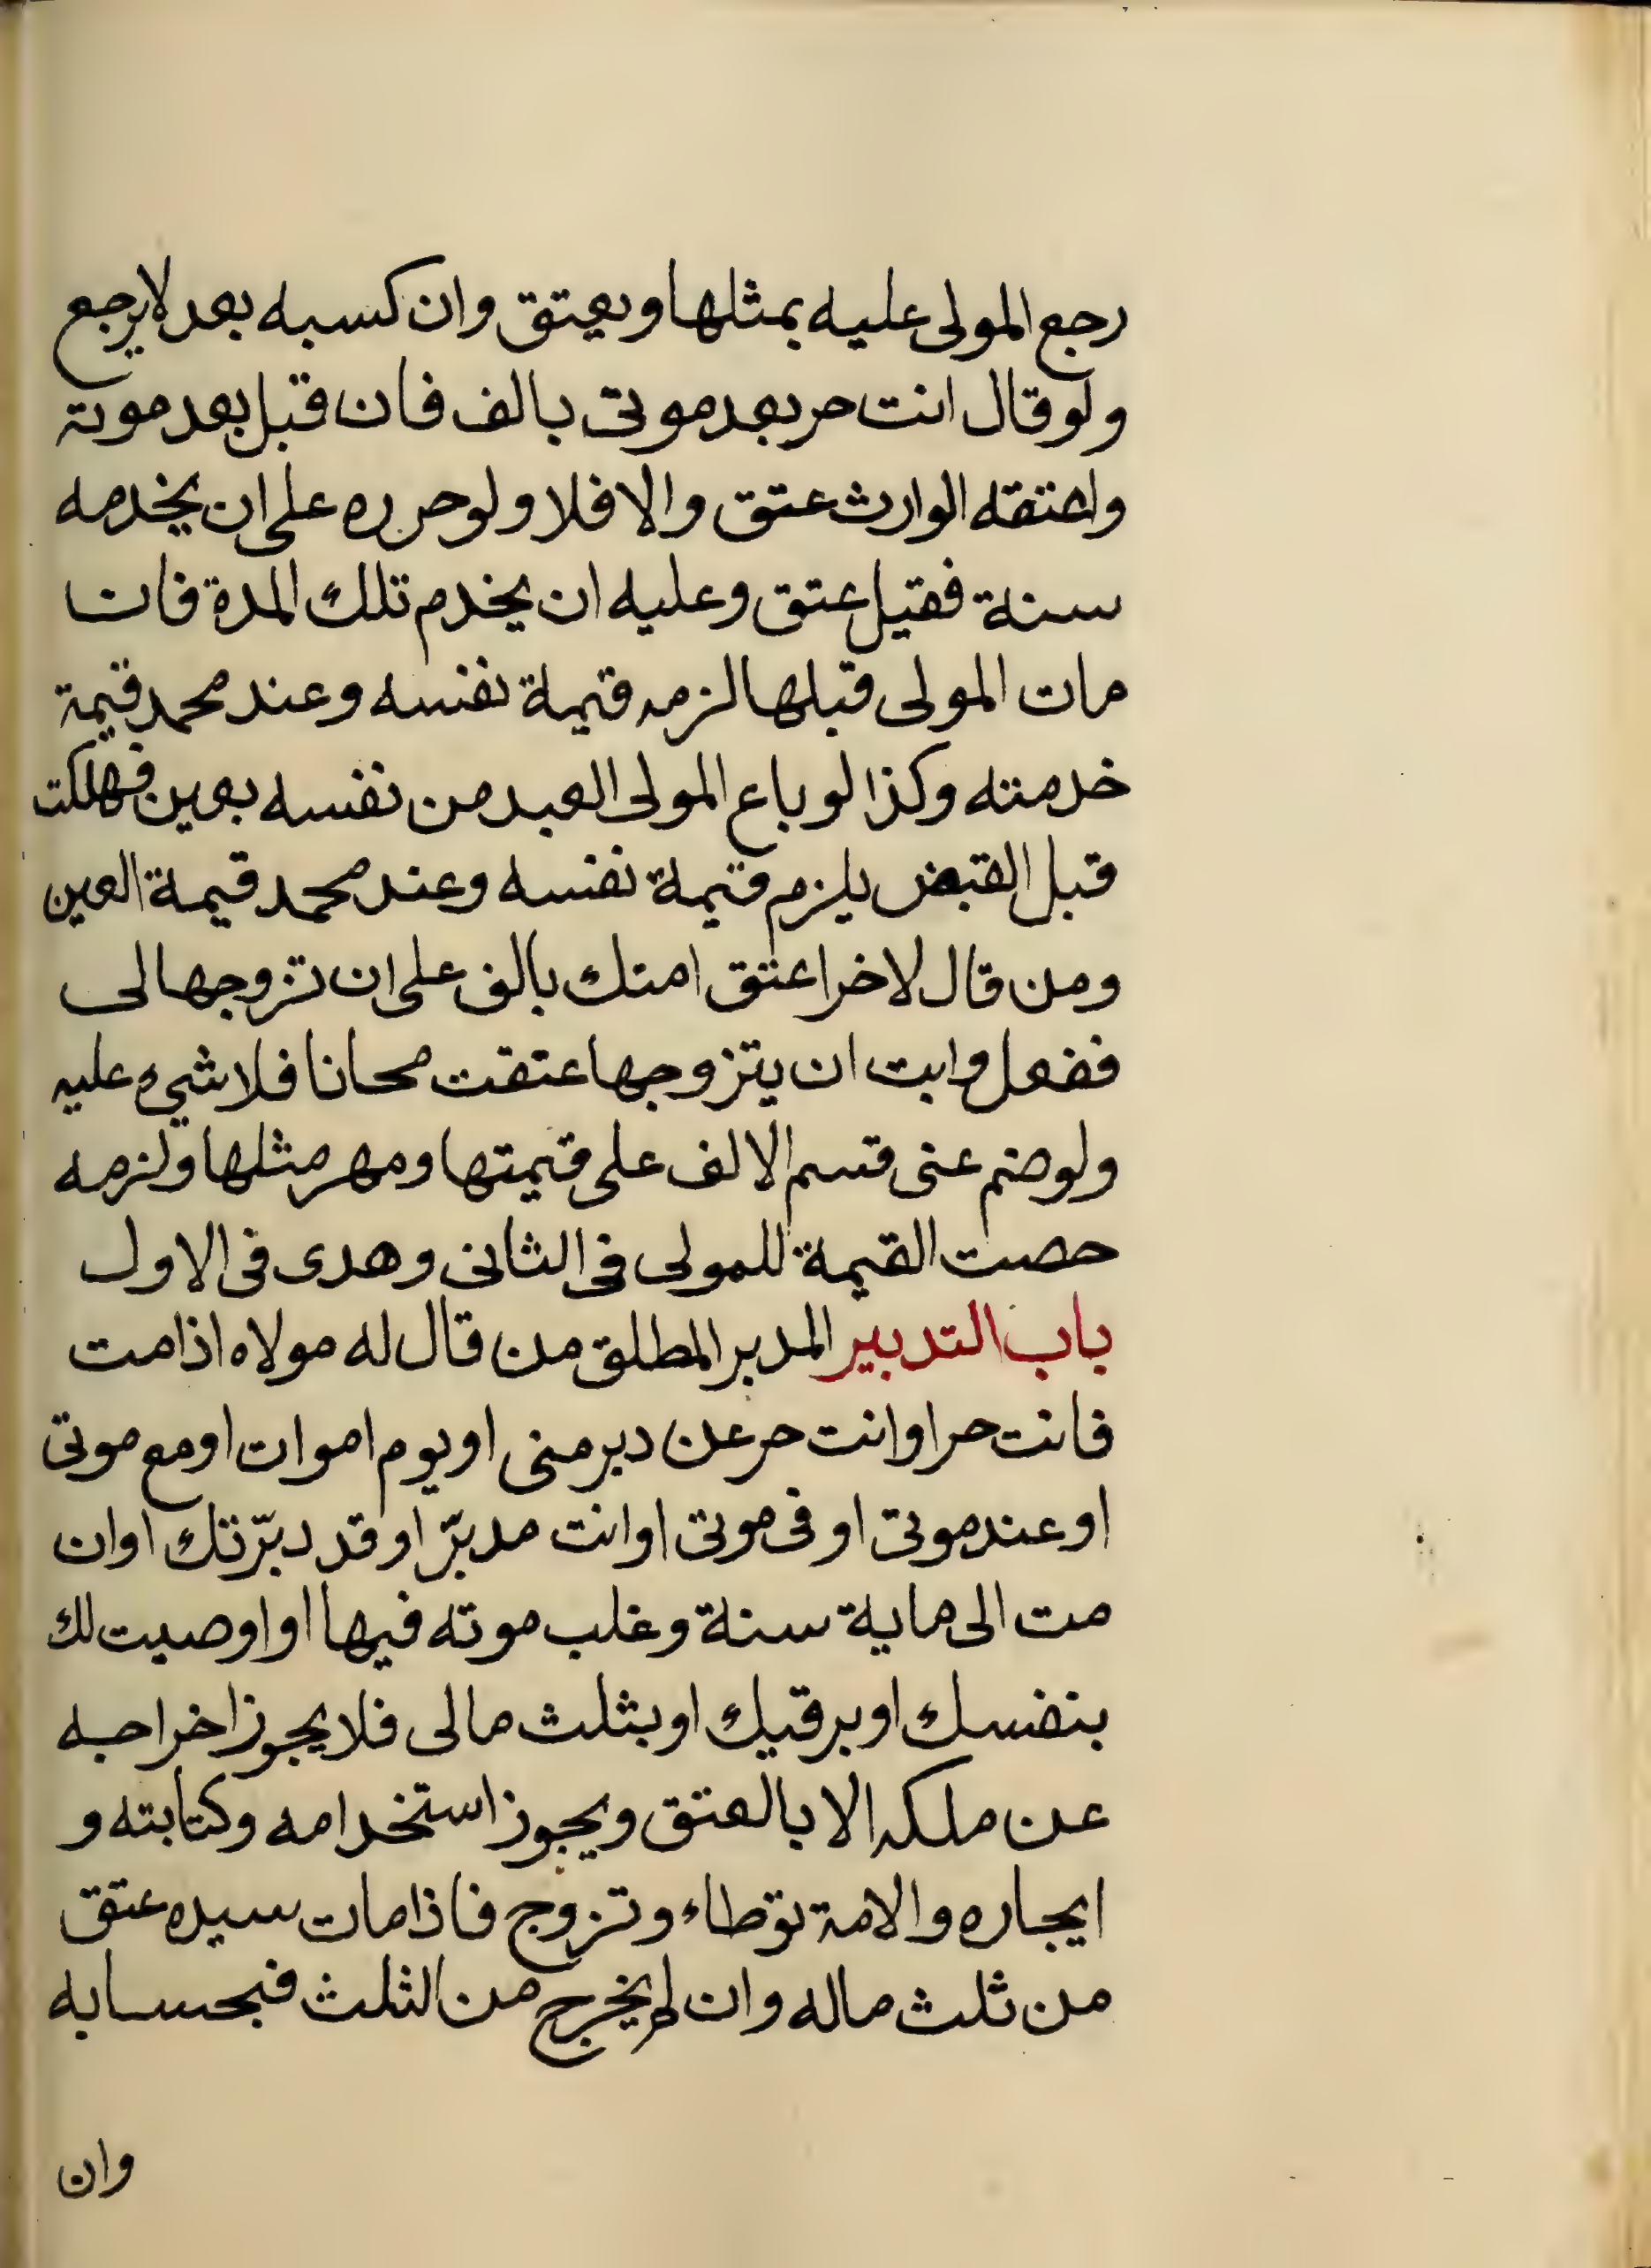 رجع المولى عليه بمثلها ويعتق وان كسبه بعد لا يرجع
ولو قال انت حر بعد موتى بالف فان قبل بعد موته
واعتقه الوارث عتق والا فلا ولو حرره على ان يخدمه
سنة فقيل عتق وعليه ان يخدم تلك المدة فان
مات المولى قبلها لزمه قيمة نفسه وعند محمد قيمة
خدمته وكذا لو باع المولى العبد من نفسه بعين فهلكت
قبل القبض يلزم قيمة نفسه وعند محمد قيمة العين
ومن قال لاخر اعتق امتك بالف على ان تزوجها لى
ففعل وابت ان يتزوجها عتقت مجانا فلا شيء عليه
ولو ضم عنى قسم الالف على قيمتها ومهر مثلها ولزمه
حصت القيمة للمولى فى الثانى وهدى فى الاول
باب التدبير المدبر المطلق من قال له مولاه اذا مت
فانت حر او انت حر عن دبر منى او يوم اموات او مع موتى
او عند موتى او فى موتى او انت مدبّر او قد دبّرتك او ان
مت الى ماية سنة وغلب موته فيها او اوصيت لك
بنفسك او برقبتك او بثلث مالى فلا يجوز اخراجه
عن ملكه الا بالعتق ويجوز استخدامه وكتابته و
ايجاره والامة توطاء وتزوج فاذا مات سيده عتق
من ثلث ماله وان لم يخرج من الثلث فبحسابه
وان